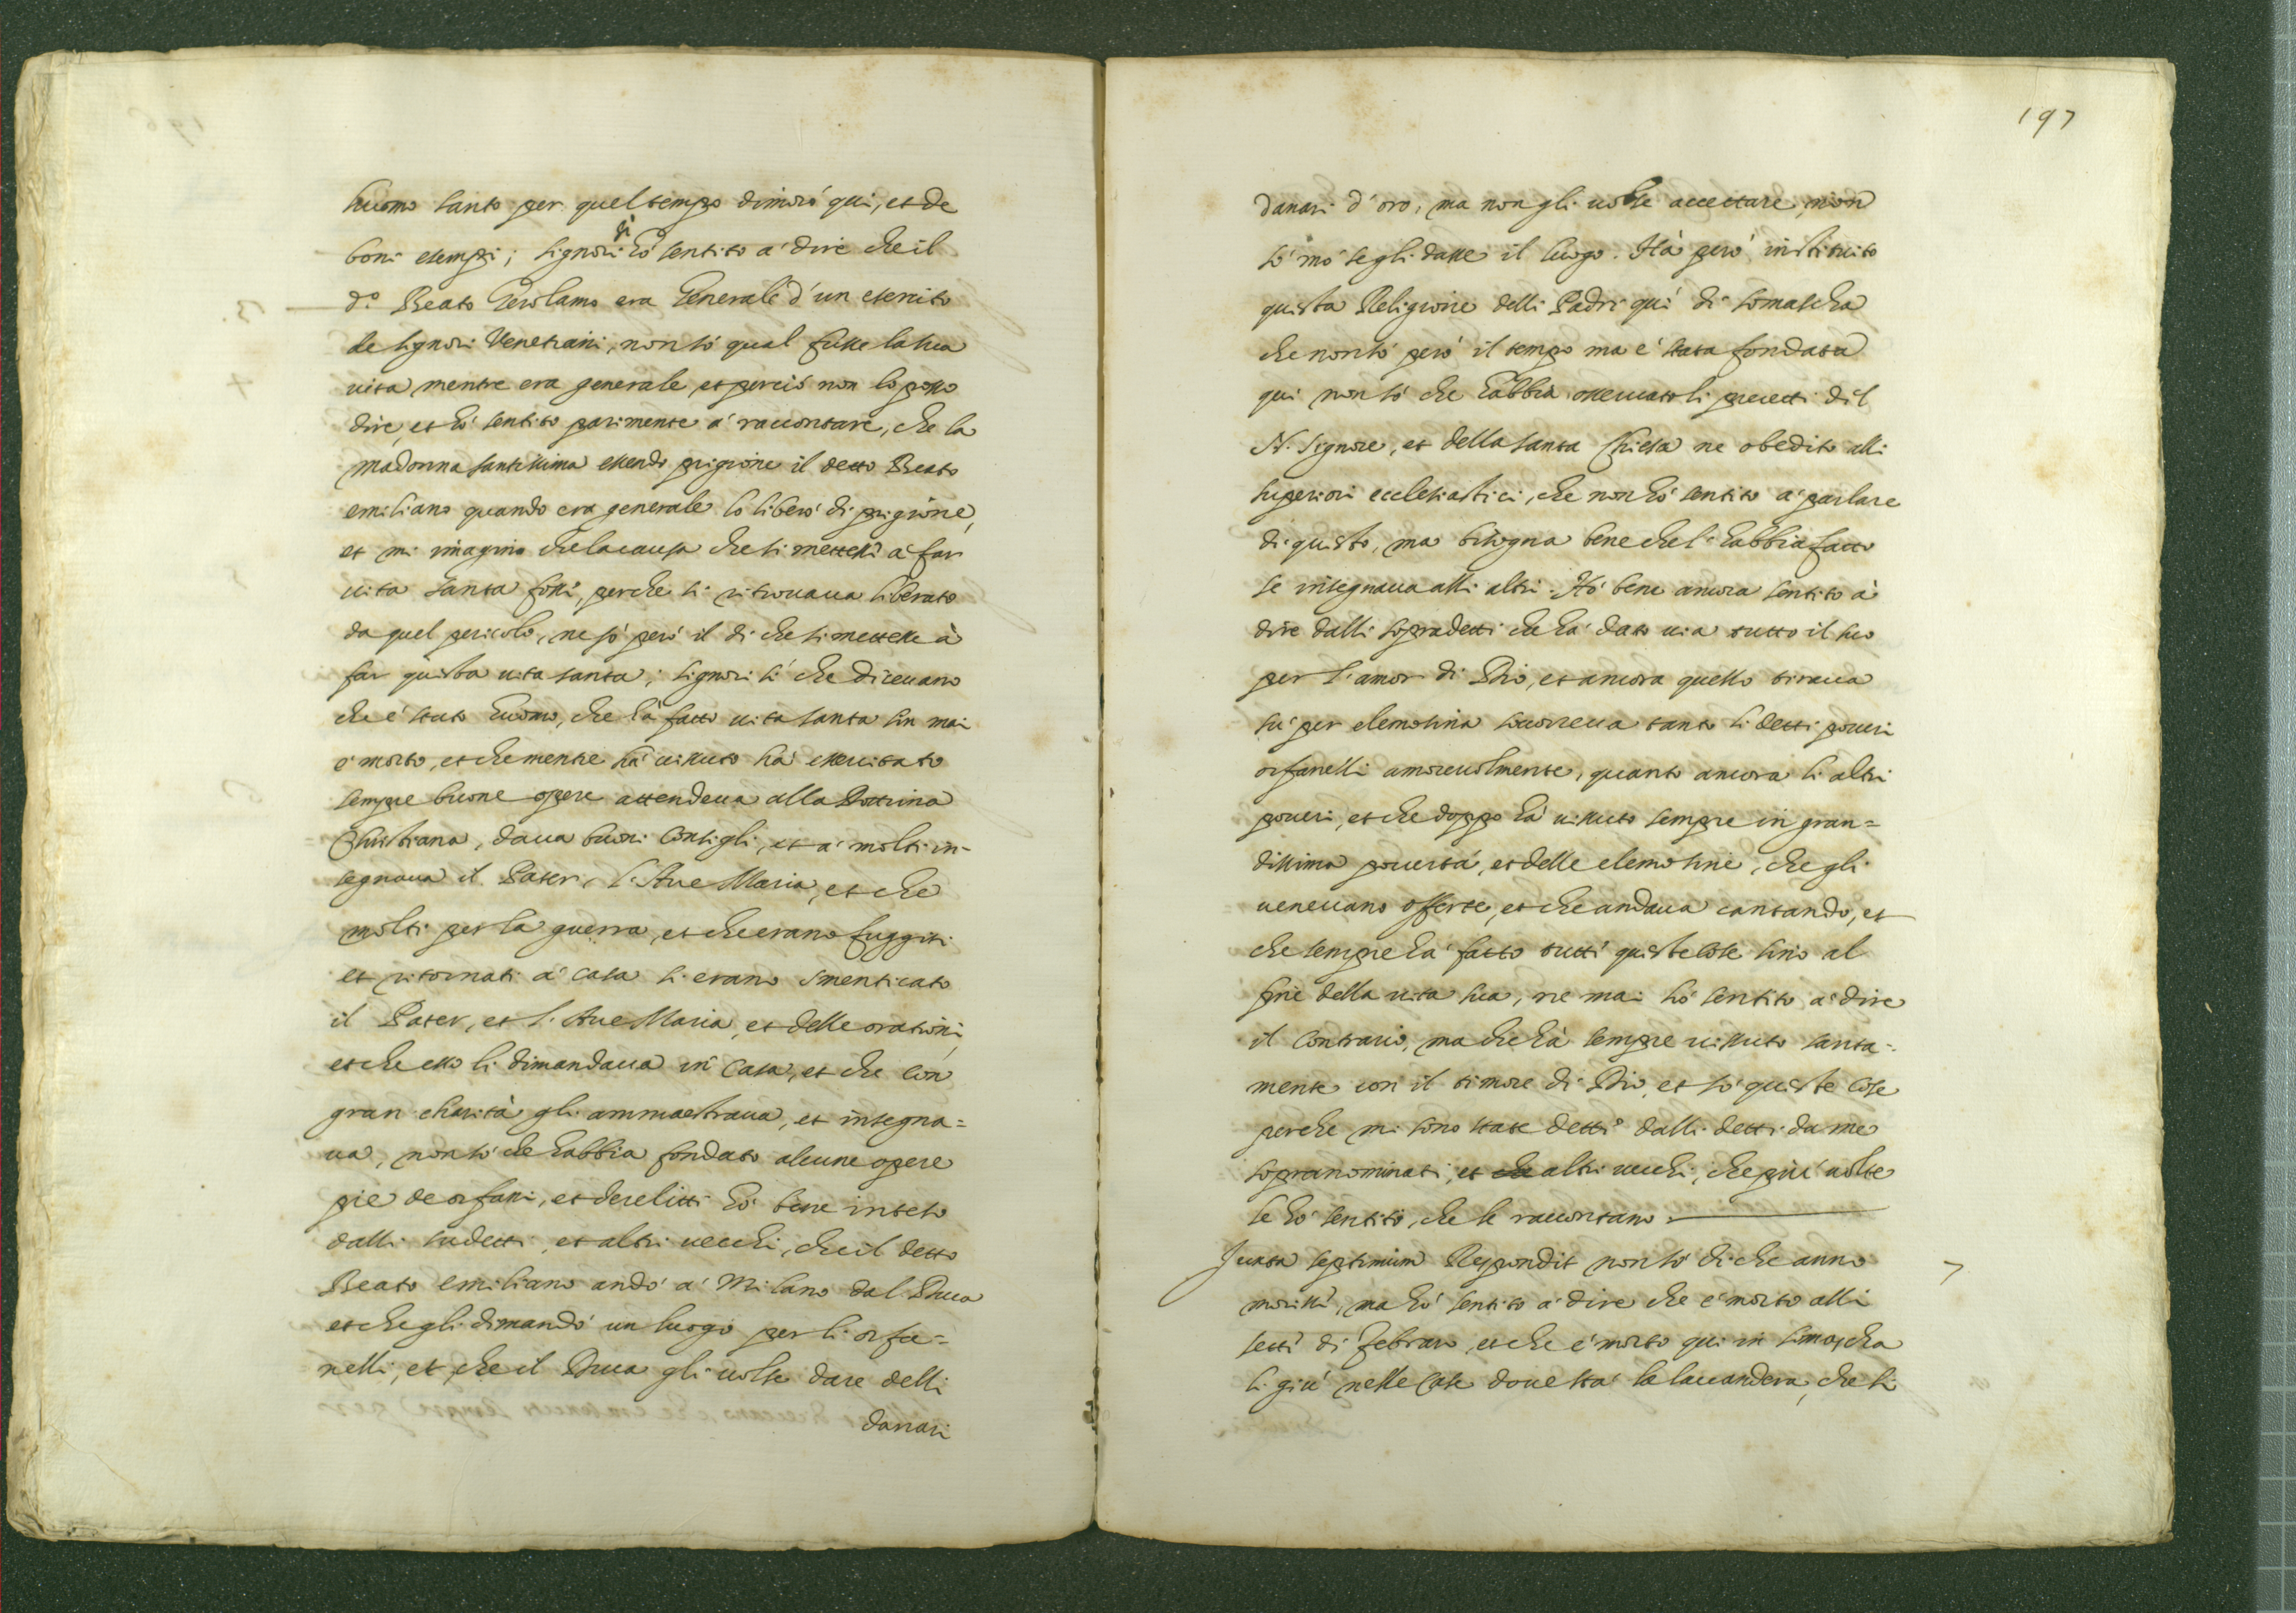 huomo santo per quel tempo dimorò qui, et de
boni esempi; signori sì hò sentito à dire che il
d.º Beato Gerolamo era Generale d'un esercito
de signori Venetiani, non sò qual fusse la sua
uita mentre era generale, et perciò non lo posso
dire, et hò sentito parimente à raccontare, che la
madonna santissima essendo prigione il detto Beato
emiliano quando era generale lo liberò di prigione,
et mi imagino che la causa che si mettesse à far
uita santa fosse, perche si ritrouaua liberato
da quel pericolo, ne sò però il di che si mettesse à
far questa uita santa; signori sì che diceuano
che è stato huomo, che hà fatto uita santa sin mai
è morto, et che mentre hà uissuto hà essercitato
sempre buone opere attendeua alla Dottrina
Christiana, daua buoni Consigli, et à molti in-
segnaua il Pater, l'Aue Maria, et che
molti per la guerra, et che erano fuggiti
et ritornati à casa si erano smenticato
il Pater, et l'Aue Maria, et delle orationi,
et che esso li dimandaua in casa, et che con
gran charità gli ammaestraua, et insegna=
ua, non sò che habbia fondato alcune opere
pie de orfani, et derelitti hò bene inteso
dalli sudetti, et altri uecchi, che il detto
Beato emiliano andò à Milano dal Duca
et che gli dimandò un luogo per li orfa=
nelli, et che il Duca gli uolse dare delli
danari
197
danari d'oro, ma non gli uolse accettare, non
sò mò se gli dasse il luogo. Hà però instituito
questa Religione delli Padri quì di somascha
che non sò però il tempo ma è stata fondata
qui non sò che habbia osseruato li precetti dil
N. Signore, et della santa Chiesa ne obedito alli
superiori ecclesiastici, che non hò sentito à parlare
di questo, ma bisogna bene che l'habbia fatto
se insegnaua alli altri. Hò bene ancora sentito à
dire dalli sopradetti che hà dato uia tutto il suo
per l'amor di Dio, et ancora quello tiraua
sù per elemosina socorreua tanto li detti poueri
orfanelli amoreuolmente, quanto ancora li altri
poueri, et che doppo hà uissuto sempre in gran=
dissima pouertà, et delle elemosine, che gli
ueneuano offerte, et che andaua cantando, et
che sempre hà fatto tutti queste cose sino al
fine della uita sua, ne mai hò sentito à dire
il contrario, ma che hà sempre uissuto santa-
mente con il timore di Dio, et sò queste cose
perche mi sono state dette dalli detti da me
sopranominati, et che altri uecchi, che più uolte
le hò sentito, che le raccontano.
Juxta septimum Respondit non sò di che anno
morisse, ma hò sentito à dire che è morto alli
sette di febraro, et che è morto qui in somascha
li giù nelle case doue stà la lauandera, che li
7